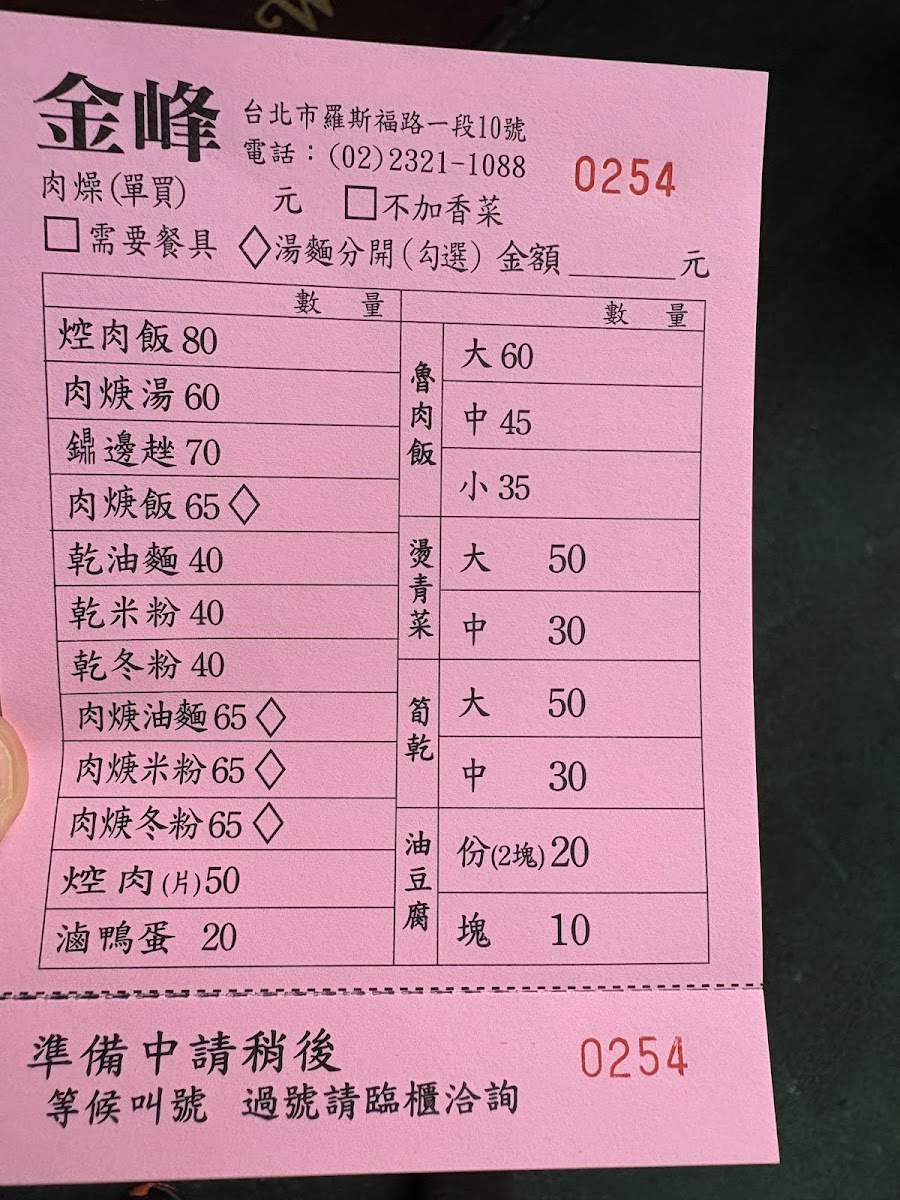 金峰
台北市羅斯福路一段10號
電話：(02)2321-1088
0254
肉燥(單買) 元 □不加香菜
□需要餐具 ◇湯麵分開(勾選) 金額______元
數 量
焢肉飯 80
肉焿湯 60
鼎邊趖 70
肉焿飯 65◇
乾油麵 40
乾米粉 40
乾冬粉 40
肉焿油麵 65◇
肉焿米粉 65◇
肉焿冬粉 65◇
焢肉(片)50
滷鴨蛋 20
數 量
魯肉飯
大 60
中 45
小 35
燙青菜
大 50
中 30
筍乾
大 50
中 30
油豆腐
份(2塊)20
塊 10
準備中請稍後
等候叫號 過號請臨櫃洽詢
0254